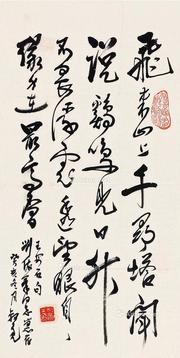 飛來山上千尋塔聞
說鷄鳴見日升
不畏浮雲遮望眼自
緣身在最高層
王安石句